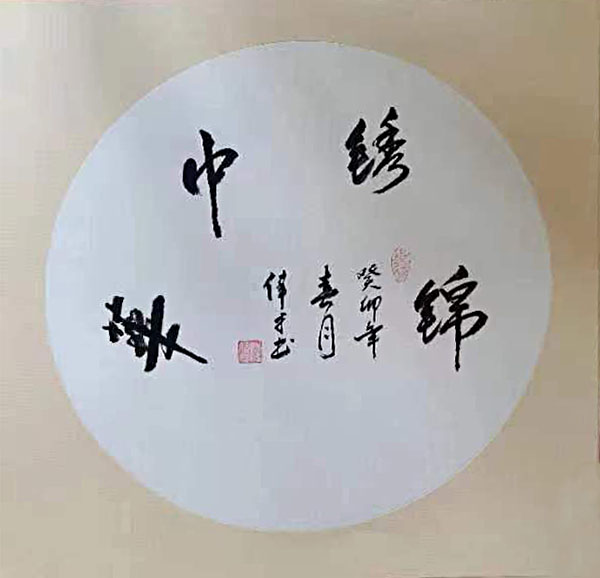 锦锈中
癸卯年
春月
伟才书